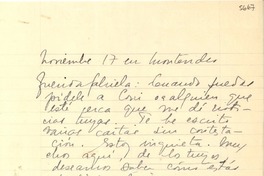 Noviembre 17 en Montevideo
Querida Gabriela: Cuando puedas
pídele a Coni o alguien que
esté cerca que me dé noti-
cias tuyas. Te he escrito
varias cartas sin contesta-
ción. Estoy inquieta. Muy
aquí, de los tuyos
deseamos saber como estás